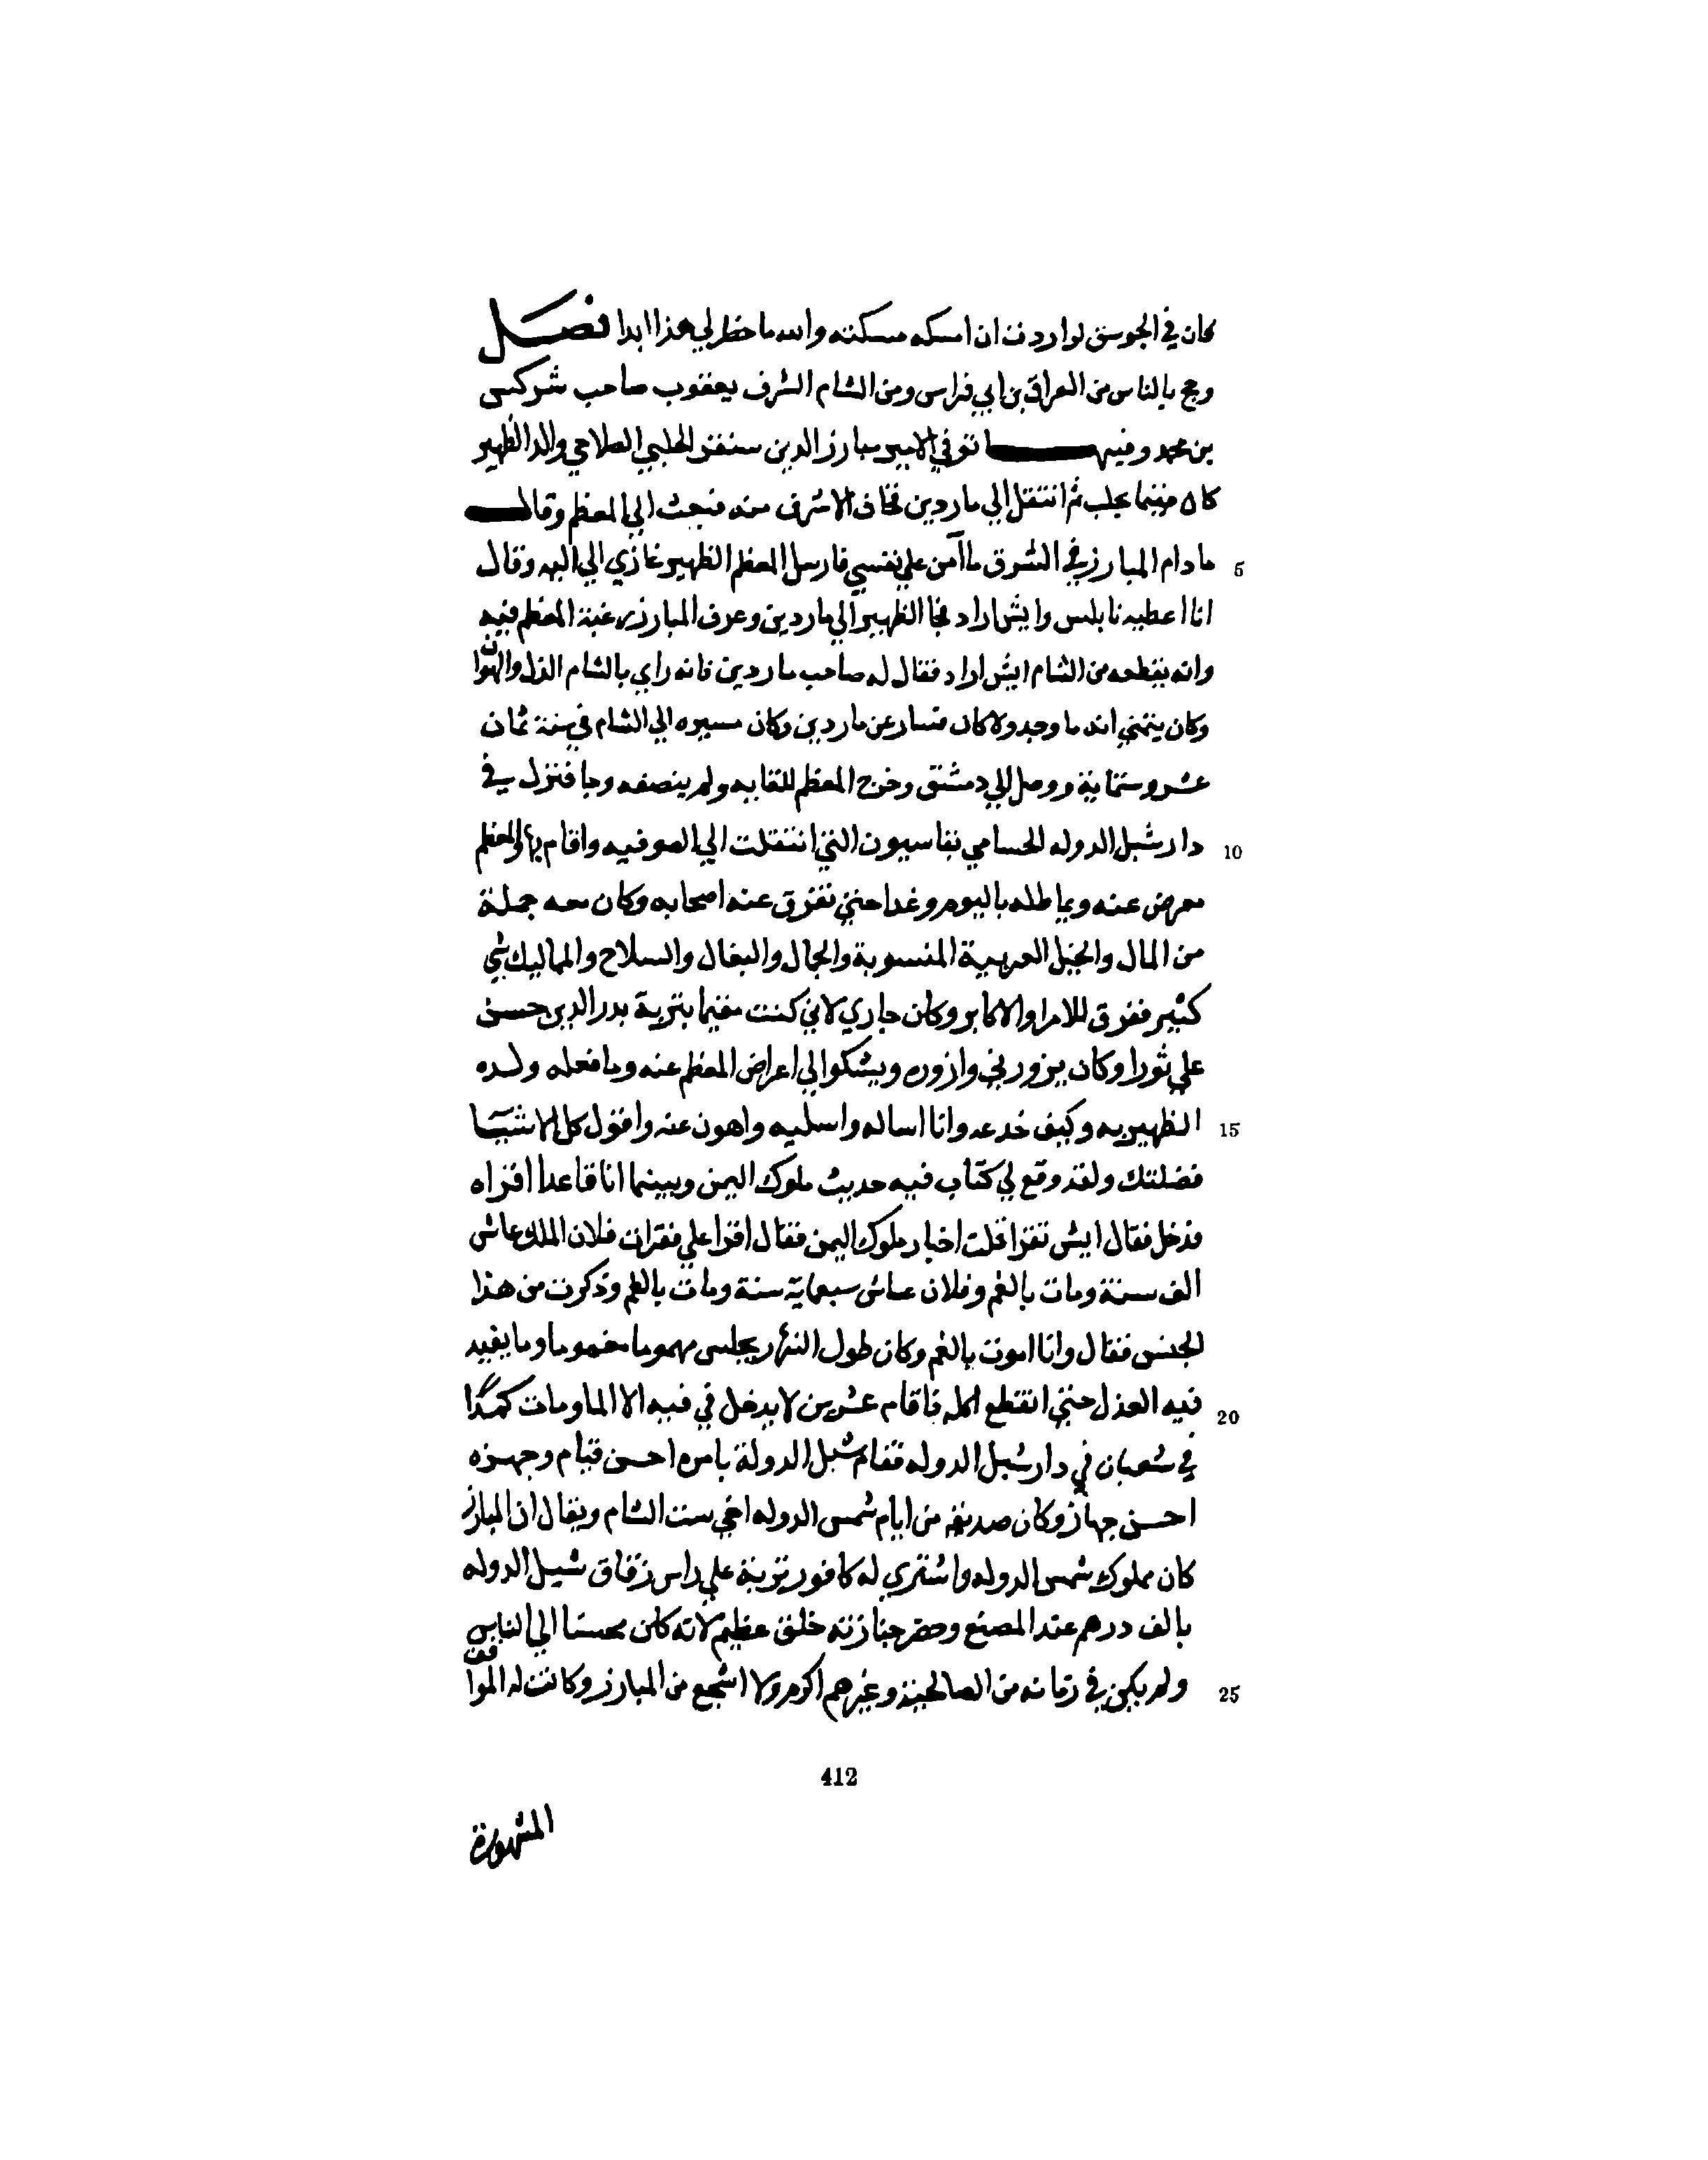 كان في الجوسق لو اردت ان امسكه مسكته والله ما خطر لي هذا ابدا فصل
وحج بالناس من العراق بن ابي فراس ومن الشام الشرف يعقوب صاحب شركس
بن محمد وفيها توفي الامير مبارز الدين سنقر الحلبي الصلاحي والد الظهير
كان مقيما بحلب ثم انتقل الي ماردين فخاف الاشرف منه فبعث الي المعظم وقال
5 ما دام المبارز في الشرق ما آمن علي نفسي فارسل المعظم الظهير غازي الي ابيه وقال
انا اعطيه نابلس وايش اراد فجا الظهير الي ماردين وعرف المبارز رغبة المعظم فيه
وانه يقطعه من الشام ايش اراد فقال له صاحب ماردين فانه راي بالشام الذل والهوان
وكان يتمني انه ما وجد ولا كان فسار عن ماردين وكان مسيره الي الشام في سنة ثمان
عشر وستماية ووصل الي دمشق وخرج المعظم للقايه ولم ينصفه وجا فنزل في
10 دار شبل الدوله الحسامي بقاسيون التي انتقلت الي الصوفيه واقام بها والمعظم
معرض عنه ويماطله باليوم وغدا حتي تفرق عنه اصحابه وكان معه جملة
من المال والخيل العربية المنسوبة والجمال والبغال والسلاح والمماليك شي
كثير ففرق للامرا والاكابر وكان جاري لاني كنت مقيما بتربة بدر الدين حسن
علي ثورا وكان يزورني وازوره ويشكوا الي اعراض المعظم عنه وما فعله ولده
15 الظهير به وكيف خدعه وانا اساله واسليه واهون عنه واقول كل الاشيا
فضلتك ولقد وقع لي كتاب فيه حديث ملوك اليمن وبينما انا قاعدا اقراه
فدخل فقال ايش تقرا قلت اخبار ملوك اليمن فقال اقرا علي فقرات فلان الملك عاش
الف سنة ومات بالغم وفلان عاش سبعماية سنة ومات بالغم وذكرت من هذا
الجنس فقال وانا اموت بالغم وكان طول النهار يجلس مهموما مغموما وما يفيد
20 فيه العذل حتي انقطع اكله فاقام عشرين لا يدخل في فيه الا الما ومات كمدا
في شعبان في دار شبل الدوله فقام شبل الدولة بامره احسن قيام وجهزه
احسن جهاز وكان صديقه من ايام شمس الدوله اخي ست الشام ويقال ان المبارز
كان مملوك شمس الدوله واشتري له كافور تربة علي راس زقاق شبل الدوله
بالف درهم عند المصنع وحضر جنازته خلق عظيم لانه كان محسنا الي الناس
25 ولم يكن في زمانه من الصالحيه وغيرهم اكرم ولا اشجع من المبارز وكانت له المواقف
412
المشهورة